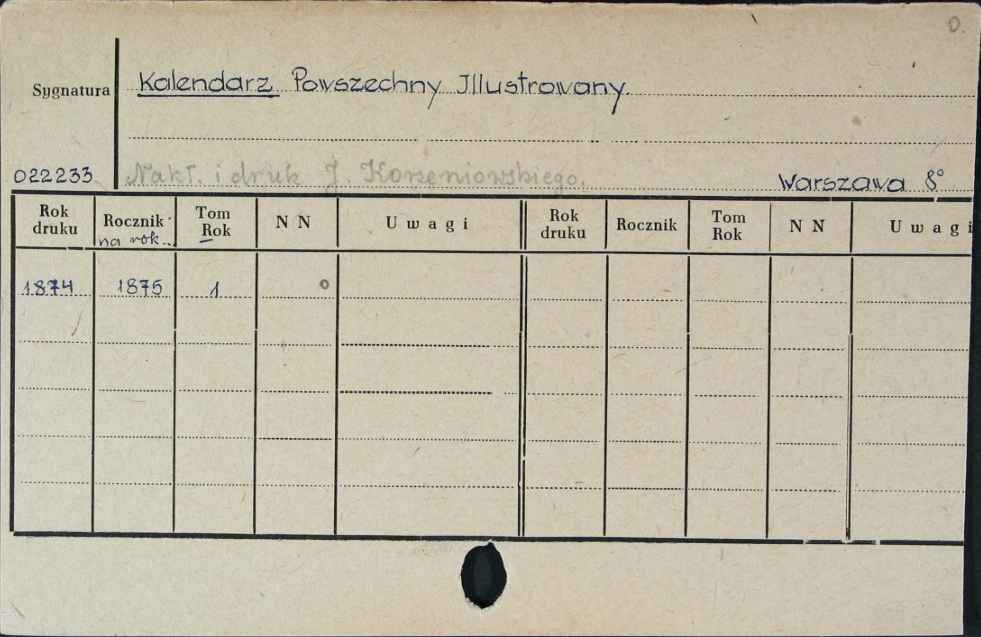 0.
Sygnatura Kalendarz Powszechny Illustrowany.
022233 Nakł. i druk J. Korzeniowskiego. Warszawa 8°
Rok druku Rocznik na rok Tom Rok N N Uwagi Rok druku Rocznik Tom Rok N N Uwagi
1874 1875 1